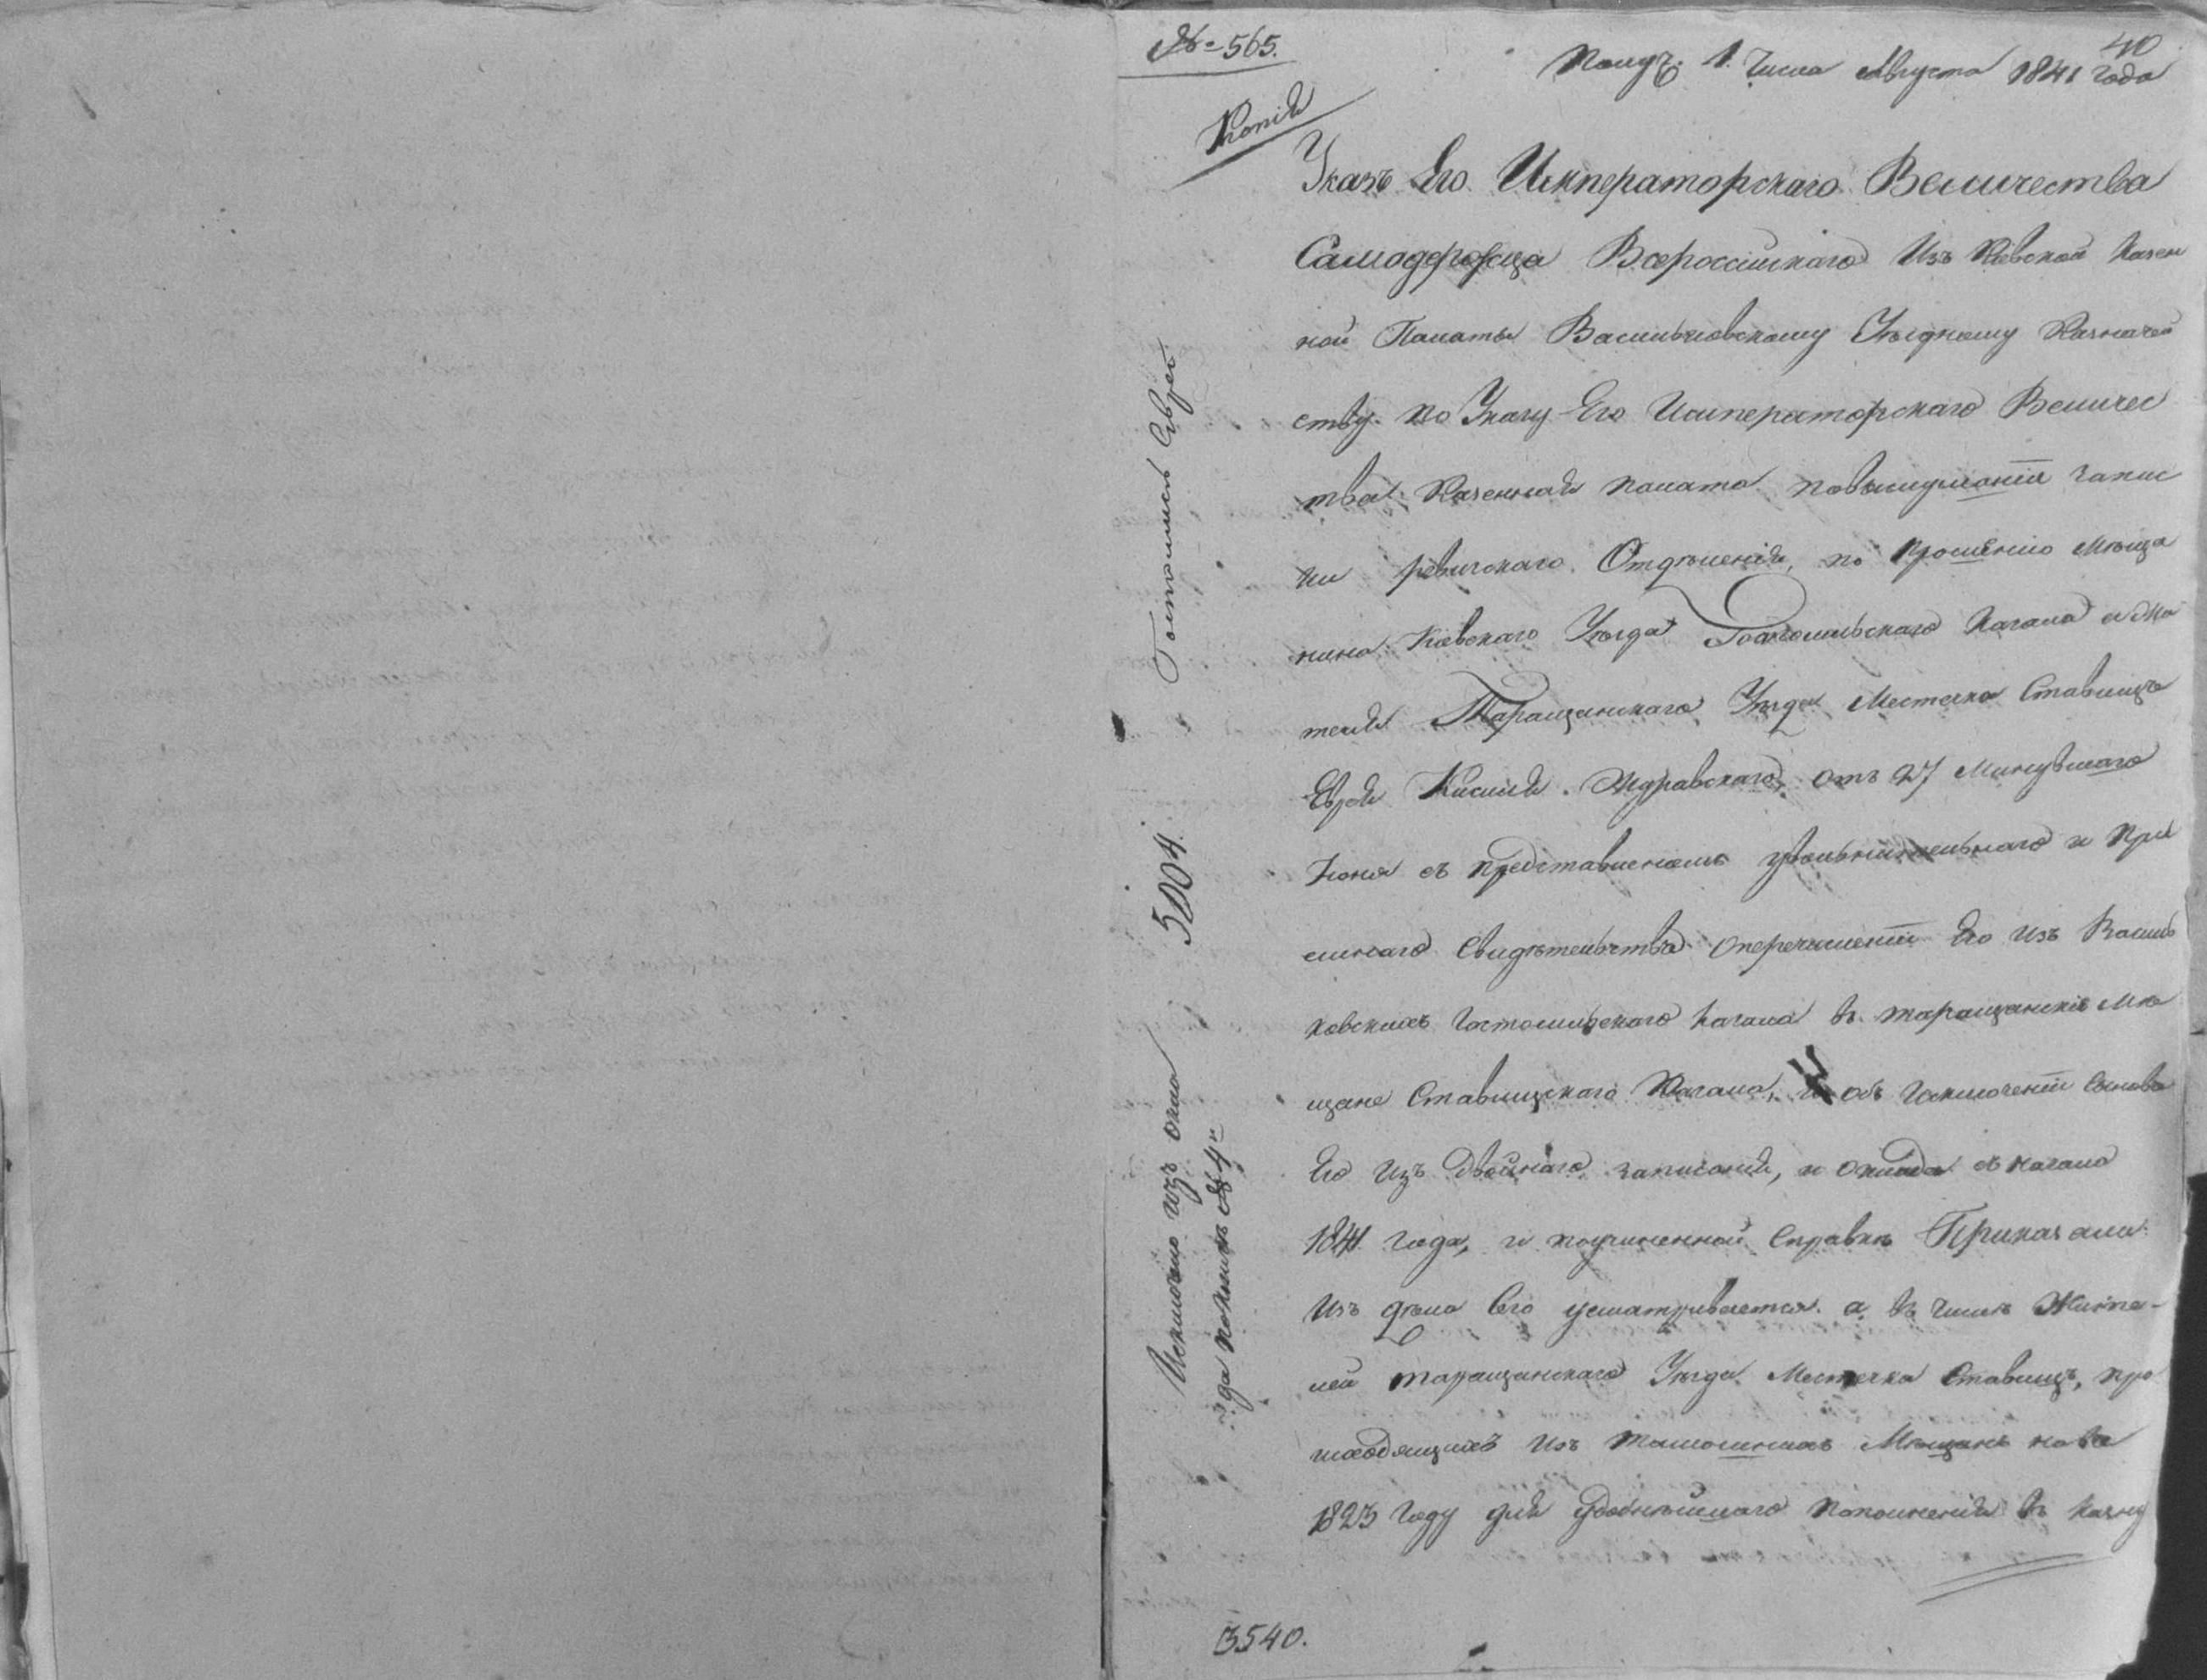 № 565.
40
Получ. 1. Числа Августа 1841 года
Копія
Указъ Его Императорскаго Величества
Самодержца Всероссійскаго Изъ Кіевской Казен
ной Палаты Васильковскому Уѣздному Казначей
ству. По Указу Его Императорскаго Величес
тва Казенная палата по выслушаніи запис
ки ревизскаго Отдѣленія, по прошенію мѣща
нина Кіевскаго Уѣзда Гостомльскаго Кагала а жи
теля Таращанскаго Уѣзда Местечка Ставищъ
Еврея Киселя Ждравскаго, отъ 27 Минувшаго
Іюня съ представленіемъ увольнительнаго и прі
емнаго свидѣтельствъ о перечисленіи Его изъ Василь
ковскихъ Гостомльскаго кагала въ таращанскіе Мѣ
щане Ставищскаго Кагала, и объ исключеніи сынова
Его изъ двойнаго записанія, и оклада съ начала
1841 года, и по учиненной справкѣ Приказали
Изъ дѣла сего усматривается: а, въ числѣ Жите-
лей таращанскаго Уѣзда Местечка Ставищъ, про
исходящихъ изъ тамошнихъ Мѣщанъ
1823 году для удобнѣйшаго пополненія въ казну
Исключено изъ оклада
5004.
Гостомльск. Еврес.
3540.